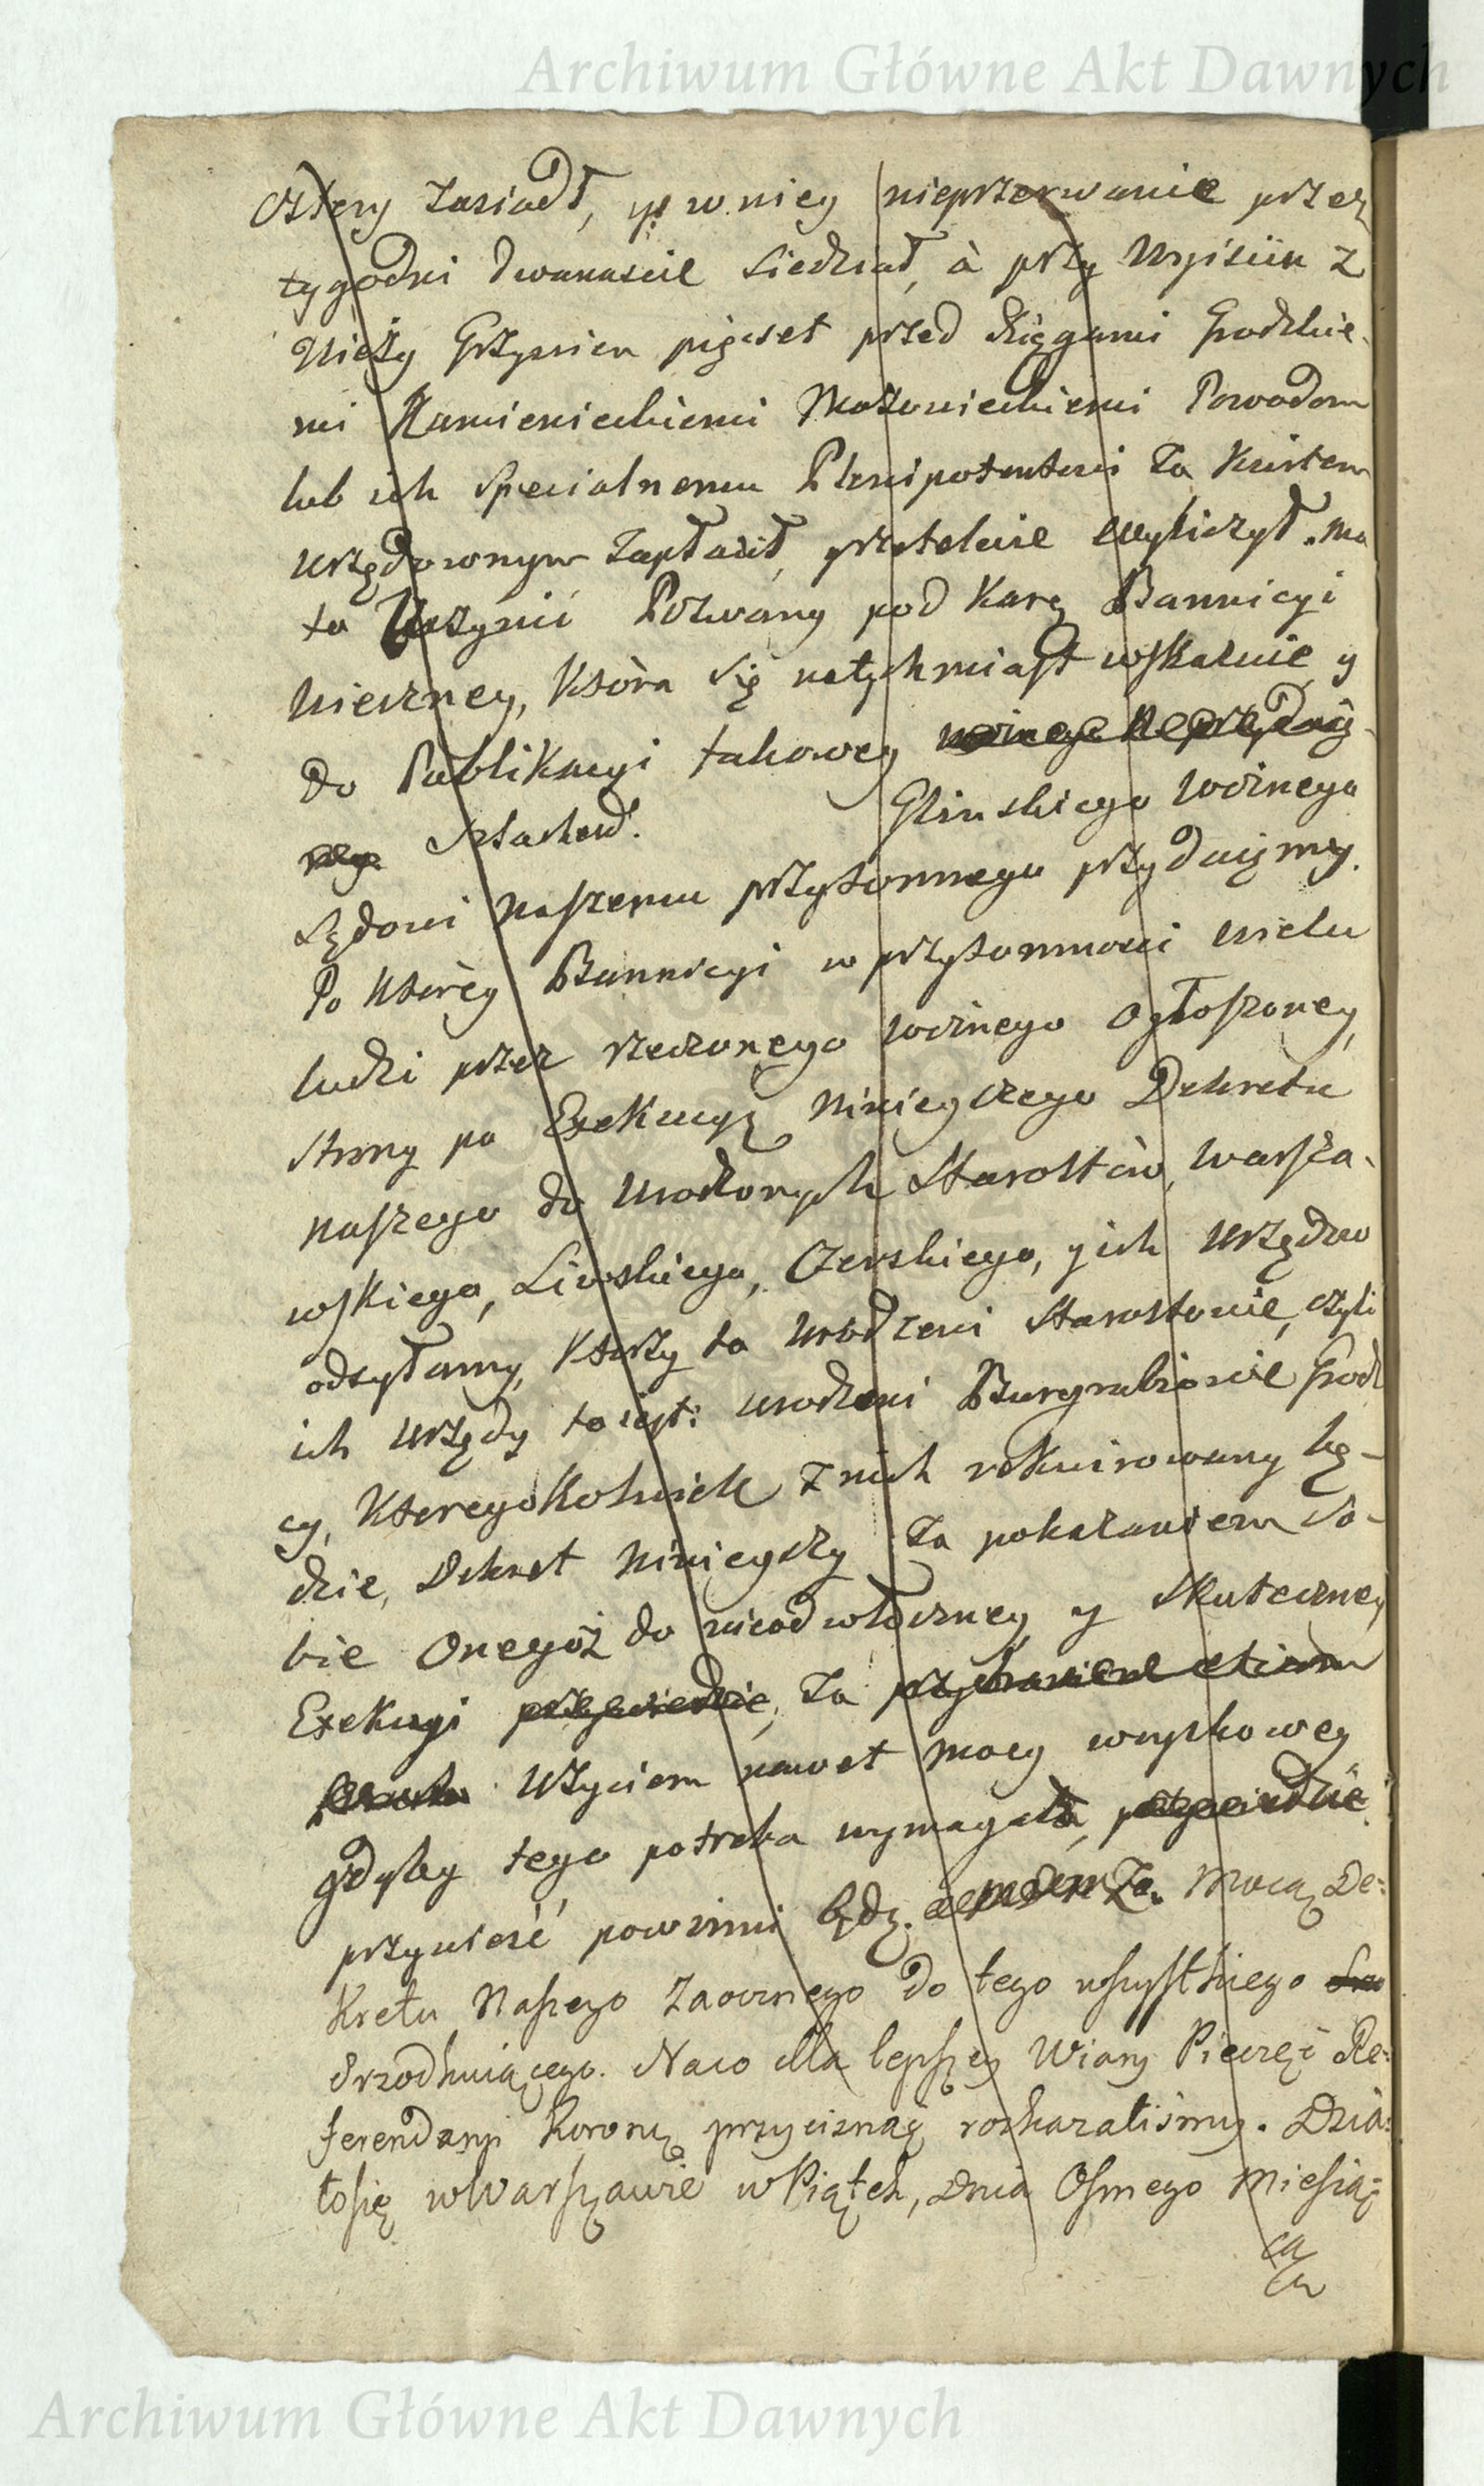 Archiwum Główne Akt Dawnych
cztery zasiadł, y w niey nieprzerwanie przez
tygodni dwanascie siedział, à przy wyiściu z
Wieży Grzywien pięcset przed Xięgami Grodzkie-
mi Kamienieckiemi Mazowieckiemi Powodom
lub ich specialnemu Plenipotentowi za kwitem
urzędownym zapłacił, rzetelnie wyliczył. ma
to uczynić Pozwany pod karą Bannicyi
wieczney, która się natychmiast wskazuie, y
do Publikacyi takowey
Szlachet. Glinskiego woznego
Sądowi naszemu przytomnego przydaięmy.
Po którey Bannicyi w przytomnosci wielu
ludzi przez rzeczonego woznego ogłoszoney,
strony po Exekucyą ninieyszego Dekretu
naszego do urodzonych Starostów, warsza-
wskiego, Liwskiego, Czerskiego, y ich urzędow
odsyłamy, którzy to urodzeni Starostowie, czyli
ich urzędy to iest: urodzeni Burgrabiowie Grodz
cy, któregokolwiek z nich rekwirowany bę-
dzie, Dekret ninieyszy za pokazaniem so-
bie onegoż do nieodwłoczney y skuteczney
Exekucyi przywiedzie, za
użyciem nawet mocy woyskowey
gdyby tego potrzeba wymagała, przywiedzie
przywieść powinni będą. Mocą De=
kretu Naszego Zaocznego do tego wszystkiego
srzodkuiącego. Naco dla lepszey Wiary Pieczęć Re=
ferendaryi Koronney przycisnąć roskazaliśmy. Dzia=
łosię w Warszawie w Piątek, Dnia Osmego Miesią=
ca
Archiwum Główne Akt Dawnych